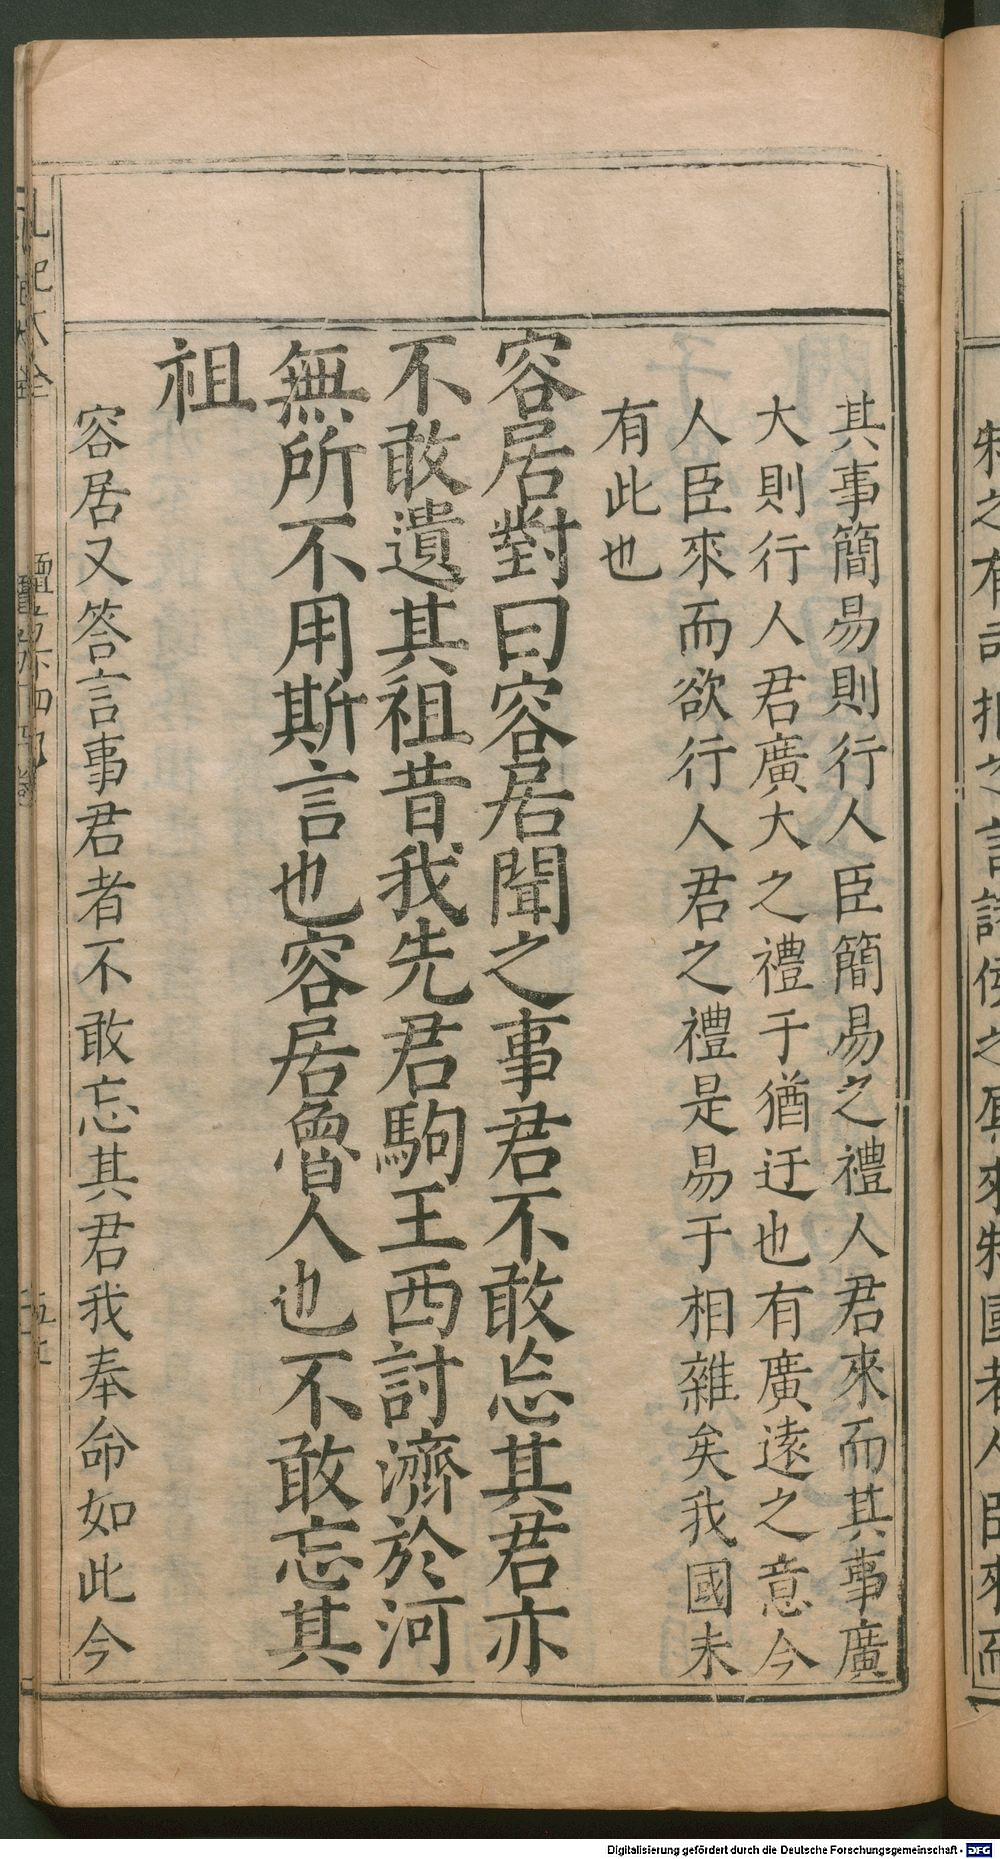 其事簡易則行人臣簡易之禮人君來而其事廣
大則行人君廣大之禮于猶迂也有廣遠之意今
人臣來而欲行人君之禮是易于相雜矣我國未
有此也
容居對曰容居聞之事君不敢忘其君亦
不敢遺其祖昔我先君駒王西討濟於河
無所不用斯言也容居魯人也不敢忘其
祖
容居又答言事君者不敢忘其君我奉命如此今
Digitalisierung gefördert durch die Deutsche Forschungsgemeinschaft - DFG